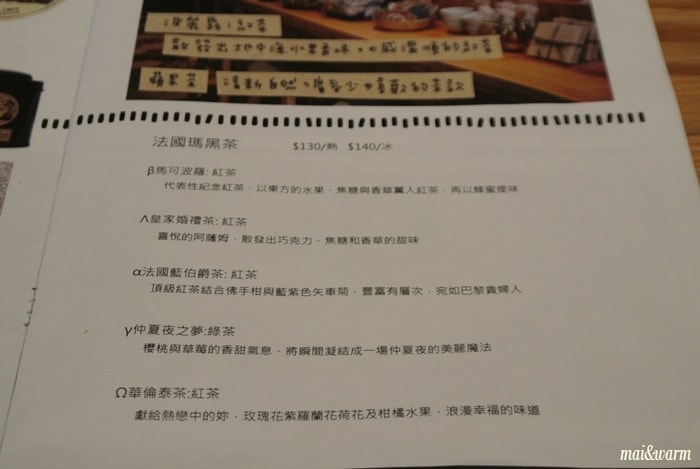 波黛莉:紅茶
散發出地中海水果香味,口感濃順的紅茶
蘋果茶 清新自然,
法國瑪黑茶 $130/熱 $140/冰
β馬可波羅: 紅茶
代表性紀念紅茶,以東方的水果、焦糖與香草薰入紅茶,再以蜂蜜提味
Λ皇家婚禮茶: 紅茶
喜悅的阿薩姆,散發出巧克力、焦糖和香草的甜味
α法國藍伯爵茶: 紅茶
頂級紅茶結合佛手柑與藍紫色矢車菊,豐富有層次,宛如巴黎貴婦人
γ仲夏夜之夢:綠茶
櫻桃與草莓的香甜氣息,將瞬間凝結成一場仲夏夜的美麗魔法
Ω華倫泰茶:紅茶
獻給熱戀中的妳,玫瑰花紫羅蘭花荷花及柑橘水果,浪漫幸福的味道
mai&warm